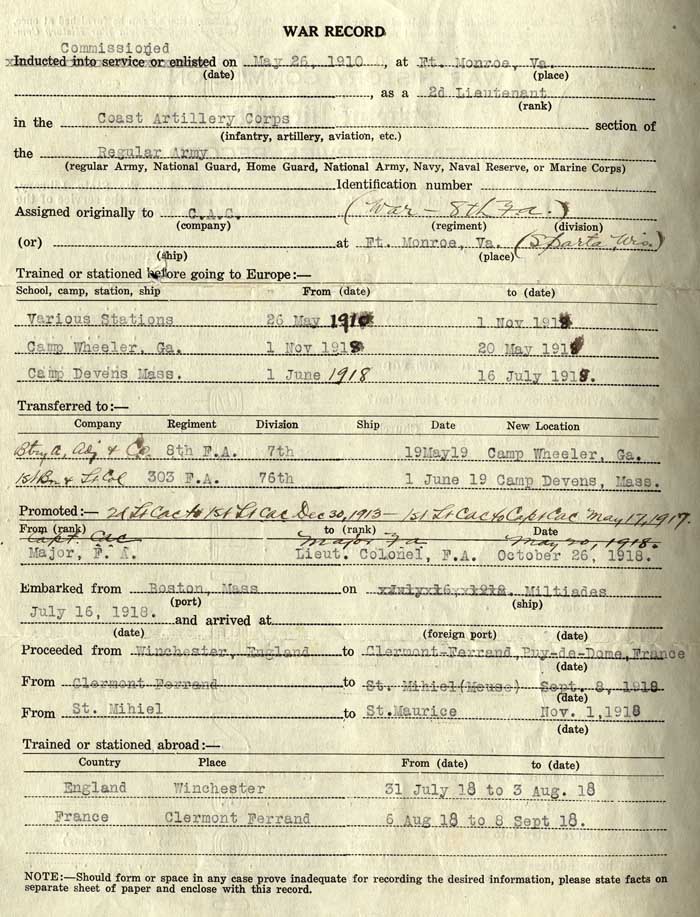 WAR RECORD
Commissioned
Inducted into service or enlisted on May 26, 1910, at Ft. Monroe, Va.
(date) (place)
, as a 2d Lieutenant
(rank)
in the Coast Artillery Corps section of
(infantry, artillery, aviation, etc.)
the Regular Army
(regular Army, National Guard, Home Guard, National Army, Navy, Naval Reserve, or Marine Corps)
Identification number
Assigned originally to C.A.C. (War - 8th F.a.)
(company) (regiment) (division)
(or) at Ft. Monroe, Va. (Sparta, Wis.)
(ship) (place)
Trained or stationed before going to Europe:—
School, camp, station, ship From (date) to (date)
Various Stations 26 May 1910 1 Nov 1918
Camp Wheeler, Ga. 1 Nov 1918 20 May 1918
Camp Devens Mass. 1 June 1918 16 July 1918.
Transferred to:—
Company Regiment Division Ship Date New Location
Btry A, Adj & Co. 8th F.A. 7th 19May19 Camp Wheeler, Ga.
1st Bn & Lt Col 303 F.A. 76th 1 June 19 Camp Devens, Mass.
Promoted:— 2d Lt Cac to 1st Lt Cac Dec 30, 1913 — 1st Lt Cac to Capt Cac May 17, 1917.
From (rank) to (rank) Date
Capt. Cac Major Fa May 20, 1918.
Major, F. A. Lieut. Colonel, F.A. October 26, 1918.
Embarked from Boston, Mass on July 16, 1918. Miltiades
(port) (ship)
July 16, 1918. and arrived at
(date) (foreign port) (date)
Proceeded from Winchester, England to Clermont-Ferrand, Puy-de-Dome, France
(date)
From Clermont Ferrand to St. Mihiel(Meuse) Sept. 8, 1918
(date)
From St. Mihiel to St.Maurice Nov. 1,1918
(date)
Trained or stationed abroad:—
Country Place From (date) to (date)
England Winchester 31 July 18 to 3 Aug. 18
France Clermont Ferrand 6 Aug 18 to 8 Sept 18.
NOTE:—Should form or space in any case prove inadequate for recording the desired information, please state facts on
separate sheet of paper and enclose with this record.